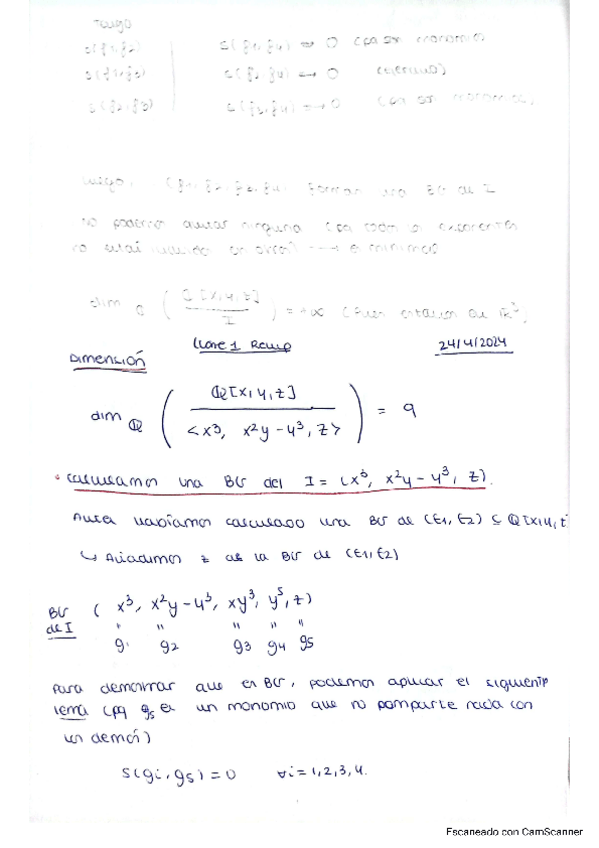 luego
S(g1,g2) S(g1,g4) → 0 (pq son monomios
S(g1,g3) S(g2,g4) → 0
S(g2,g3) S(g3,g4) → 0 (pq son monomios)
luego, (g1, g2, g3, g4) forman una BG de I
no podemos quitar ninguna (pq todos los exponentes
no están incluidos en otros) → es mínima
dim Q ( Q[x,y,z] / I ) = +∞
Clase 1 Recup 24/4/2024
DIMENSIÓN
dim Q ( Q[x,y,z] / <x³, x²y-y³, z> ) = 9
• Calculamos una BG del I = (x³, x²y-y³, z).
Antes habíamos calculado una BG de (f1,f2) ⊆ Q[x,y,z
↳ Añadimos z a la BG de (f1,f2)
BG de I ( x³, x²y-y³, xy³, y⁵, z)
g1 g2 g3 g4 g5
Para demostrar que es BG, podemos aplicar el siguiente
lema (pq g5 es un monomio que no comparte nada con
los demás)
S(gi, g5) = 0 ∀i = 1,2,3,4.
Escaneado con CamScanner